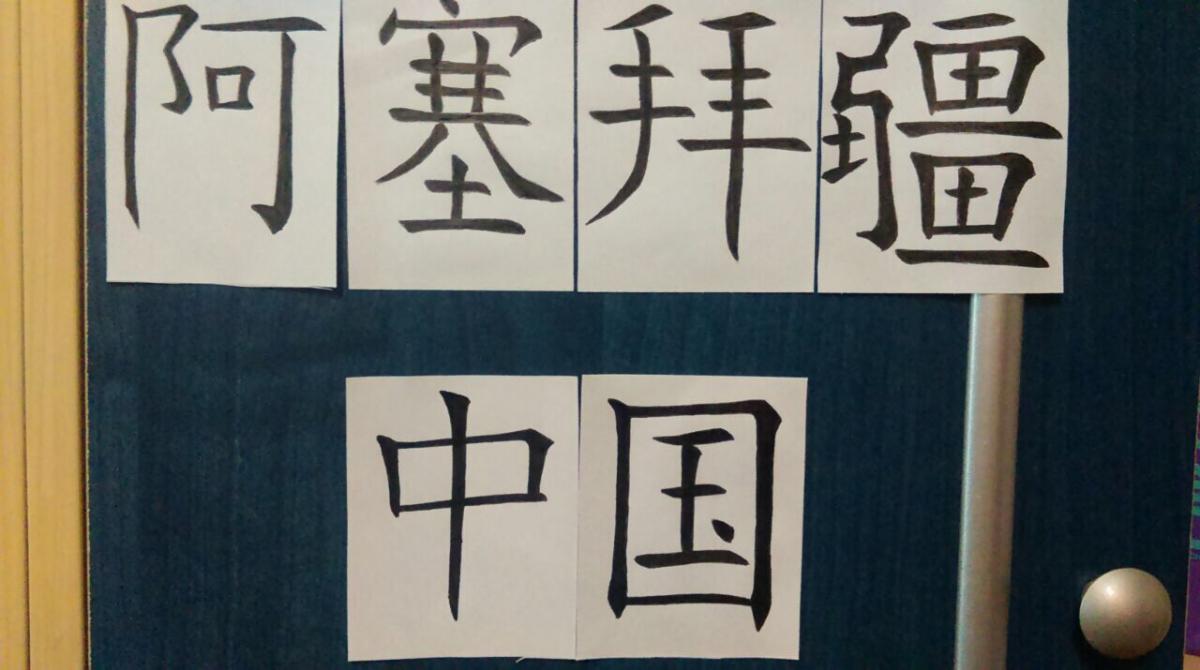 阿塞拜疆
中国